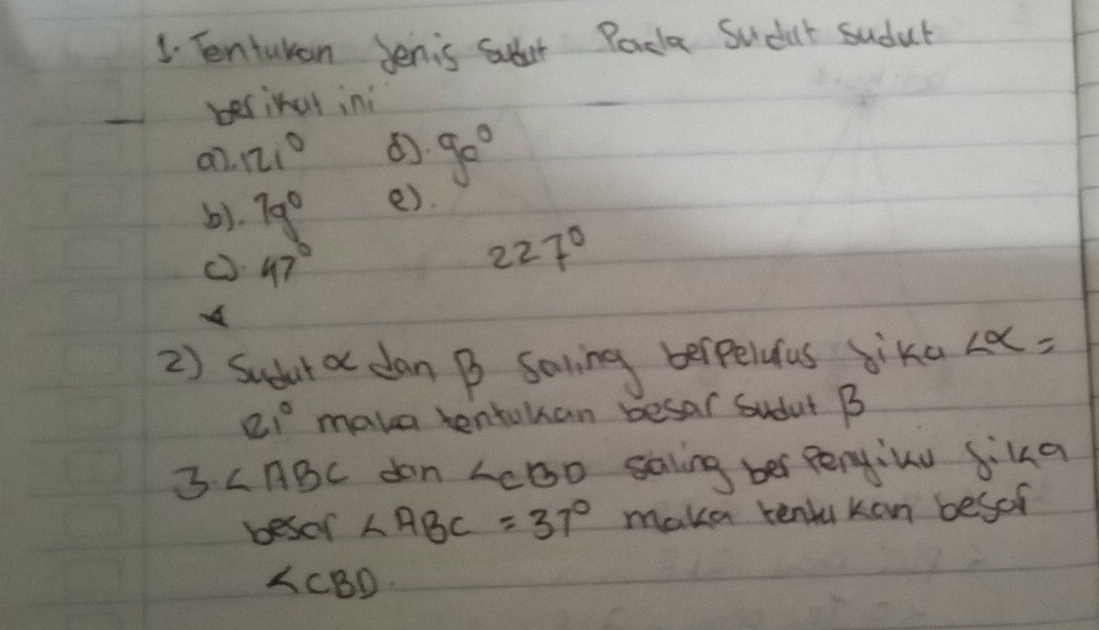 1. Tentukan Jenis Sudut Pada Sudut sudut
berikut ini
a). 121° d). 90°
b). 79° e).
c). 47° 227°
2) Sudut α dan β Saling berpelurus Jika <α =
121° maka tentukan besar sudut β
3 <ABC dan <CBD saling ber Penyiku Jika
besar <ABC = 37° maka tentukan besar
<CBD.